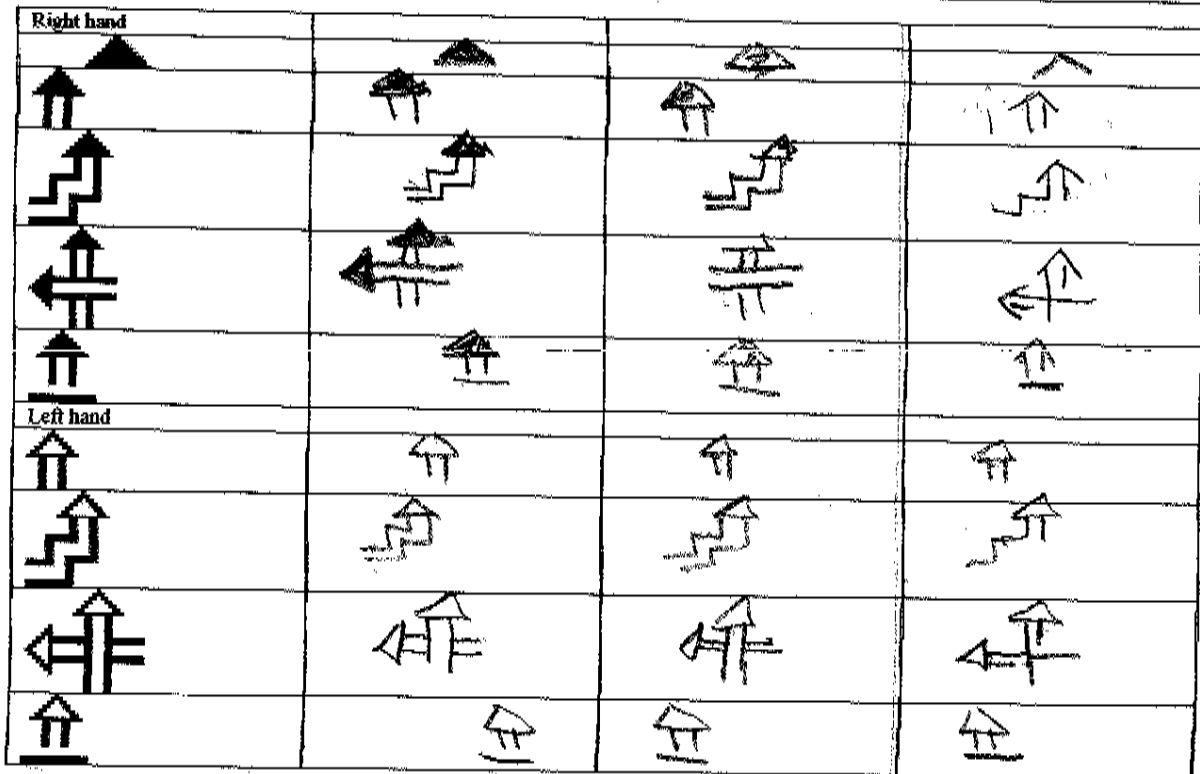 Right hand
Left hand